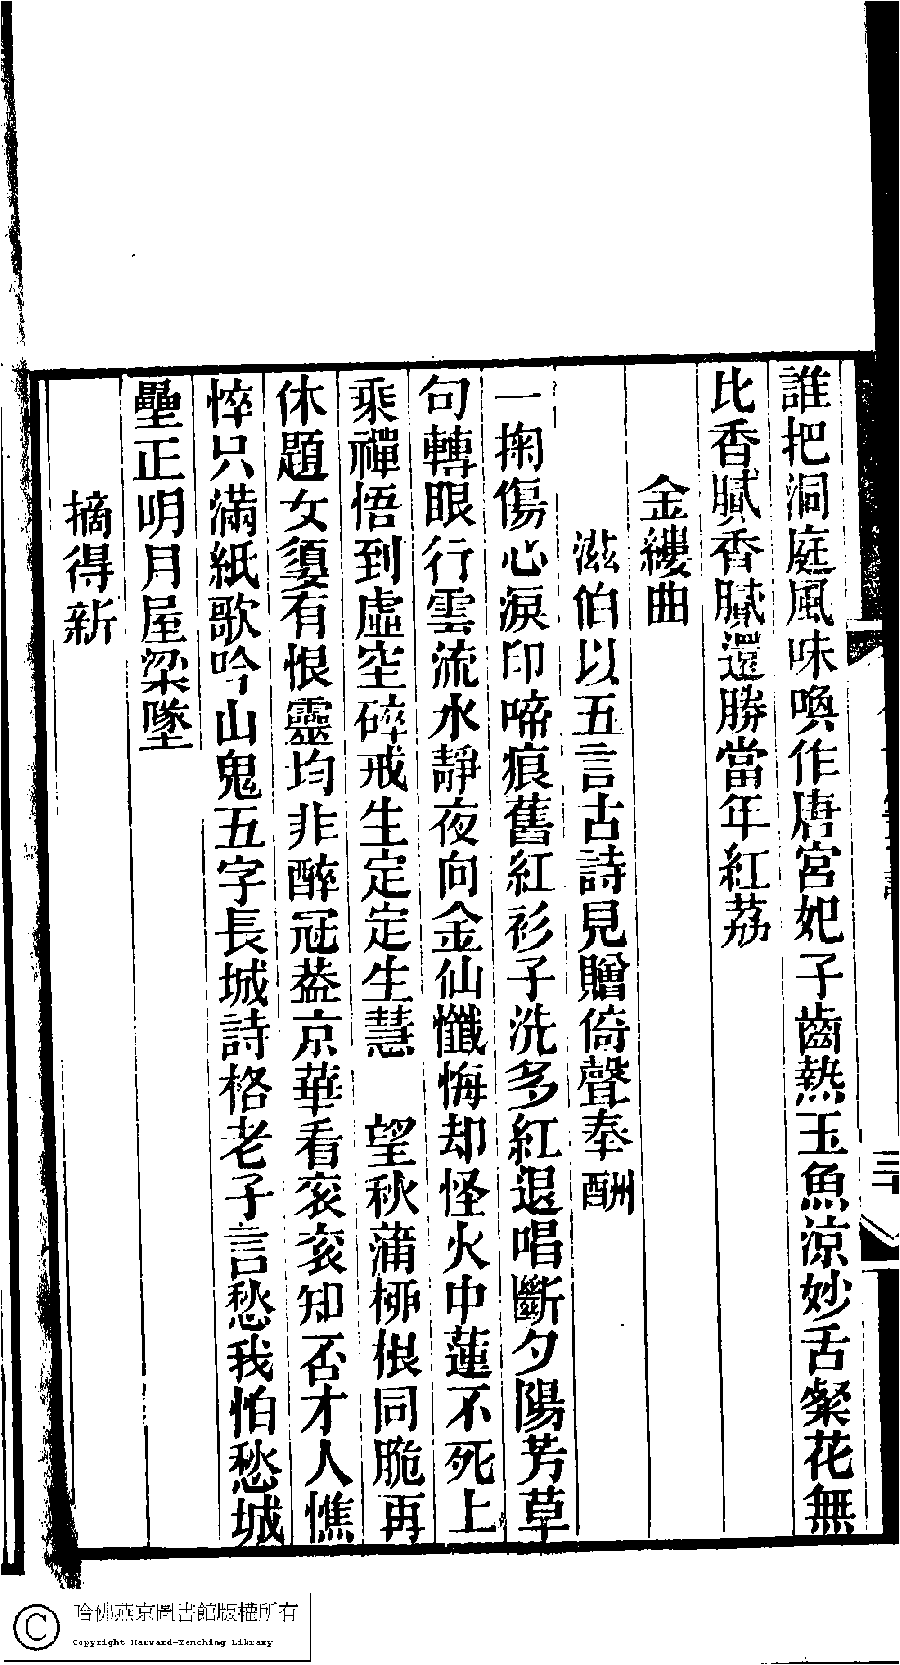 誰把洞庭風味喚作唐宮妃子齒熱玉魚涼妙舌粲花無
比香膩香膩還勝當年紅荔
金縷曲
滋伯以五言古詩見贈倚聲奉酬
一掬傷心淚印啼痕舊紅衫子洗多紅退唱斷夕陽芳草
句轉眼行雲流水靜夜向金仙懺悔却怪火中蓮不死上
乘禪悟到虛空碎戒生定定生慧　望秋蒲柳根同脆再
休題女嬃有恨靈均非醉冠蓋京華看衮衮知否才人憔
悴只滿紙歌吟山鬼五字長城詩格老子言愁我怕愁城
壘正明月屋梁墜
摘得新
三十
哈佛燕京圖書館版權所有
Copyright Harvard-Yenching Library